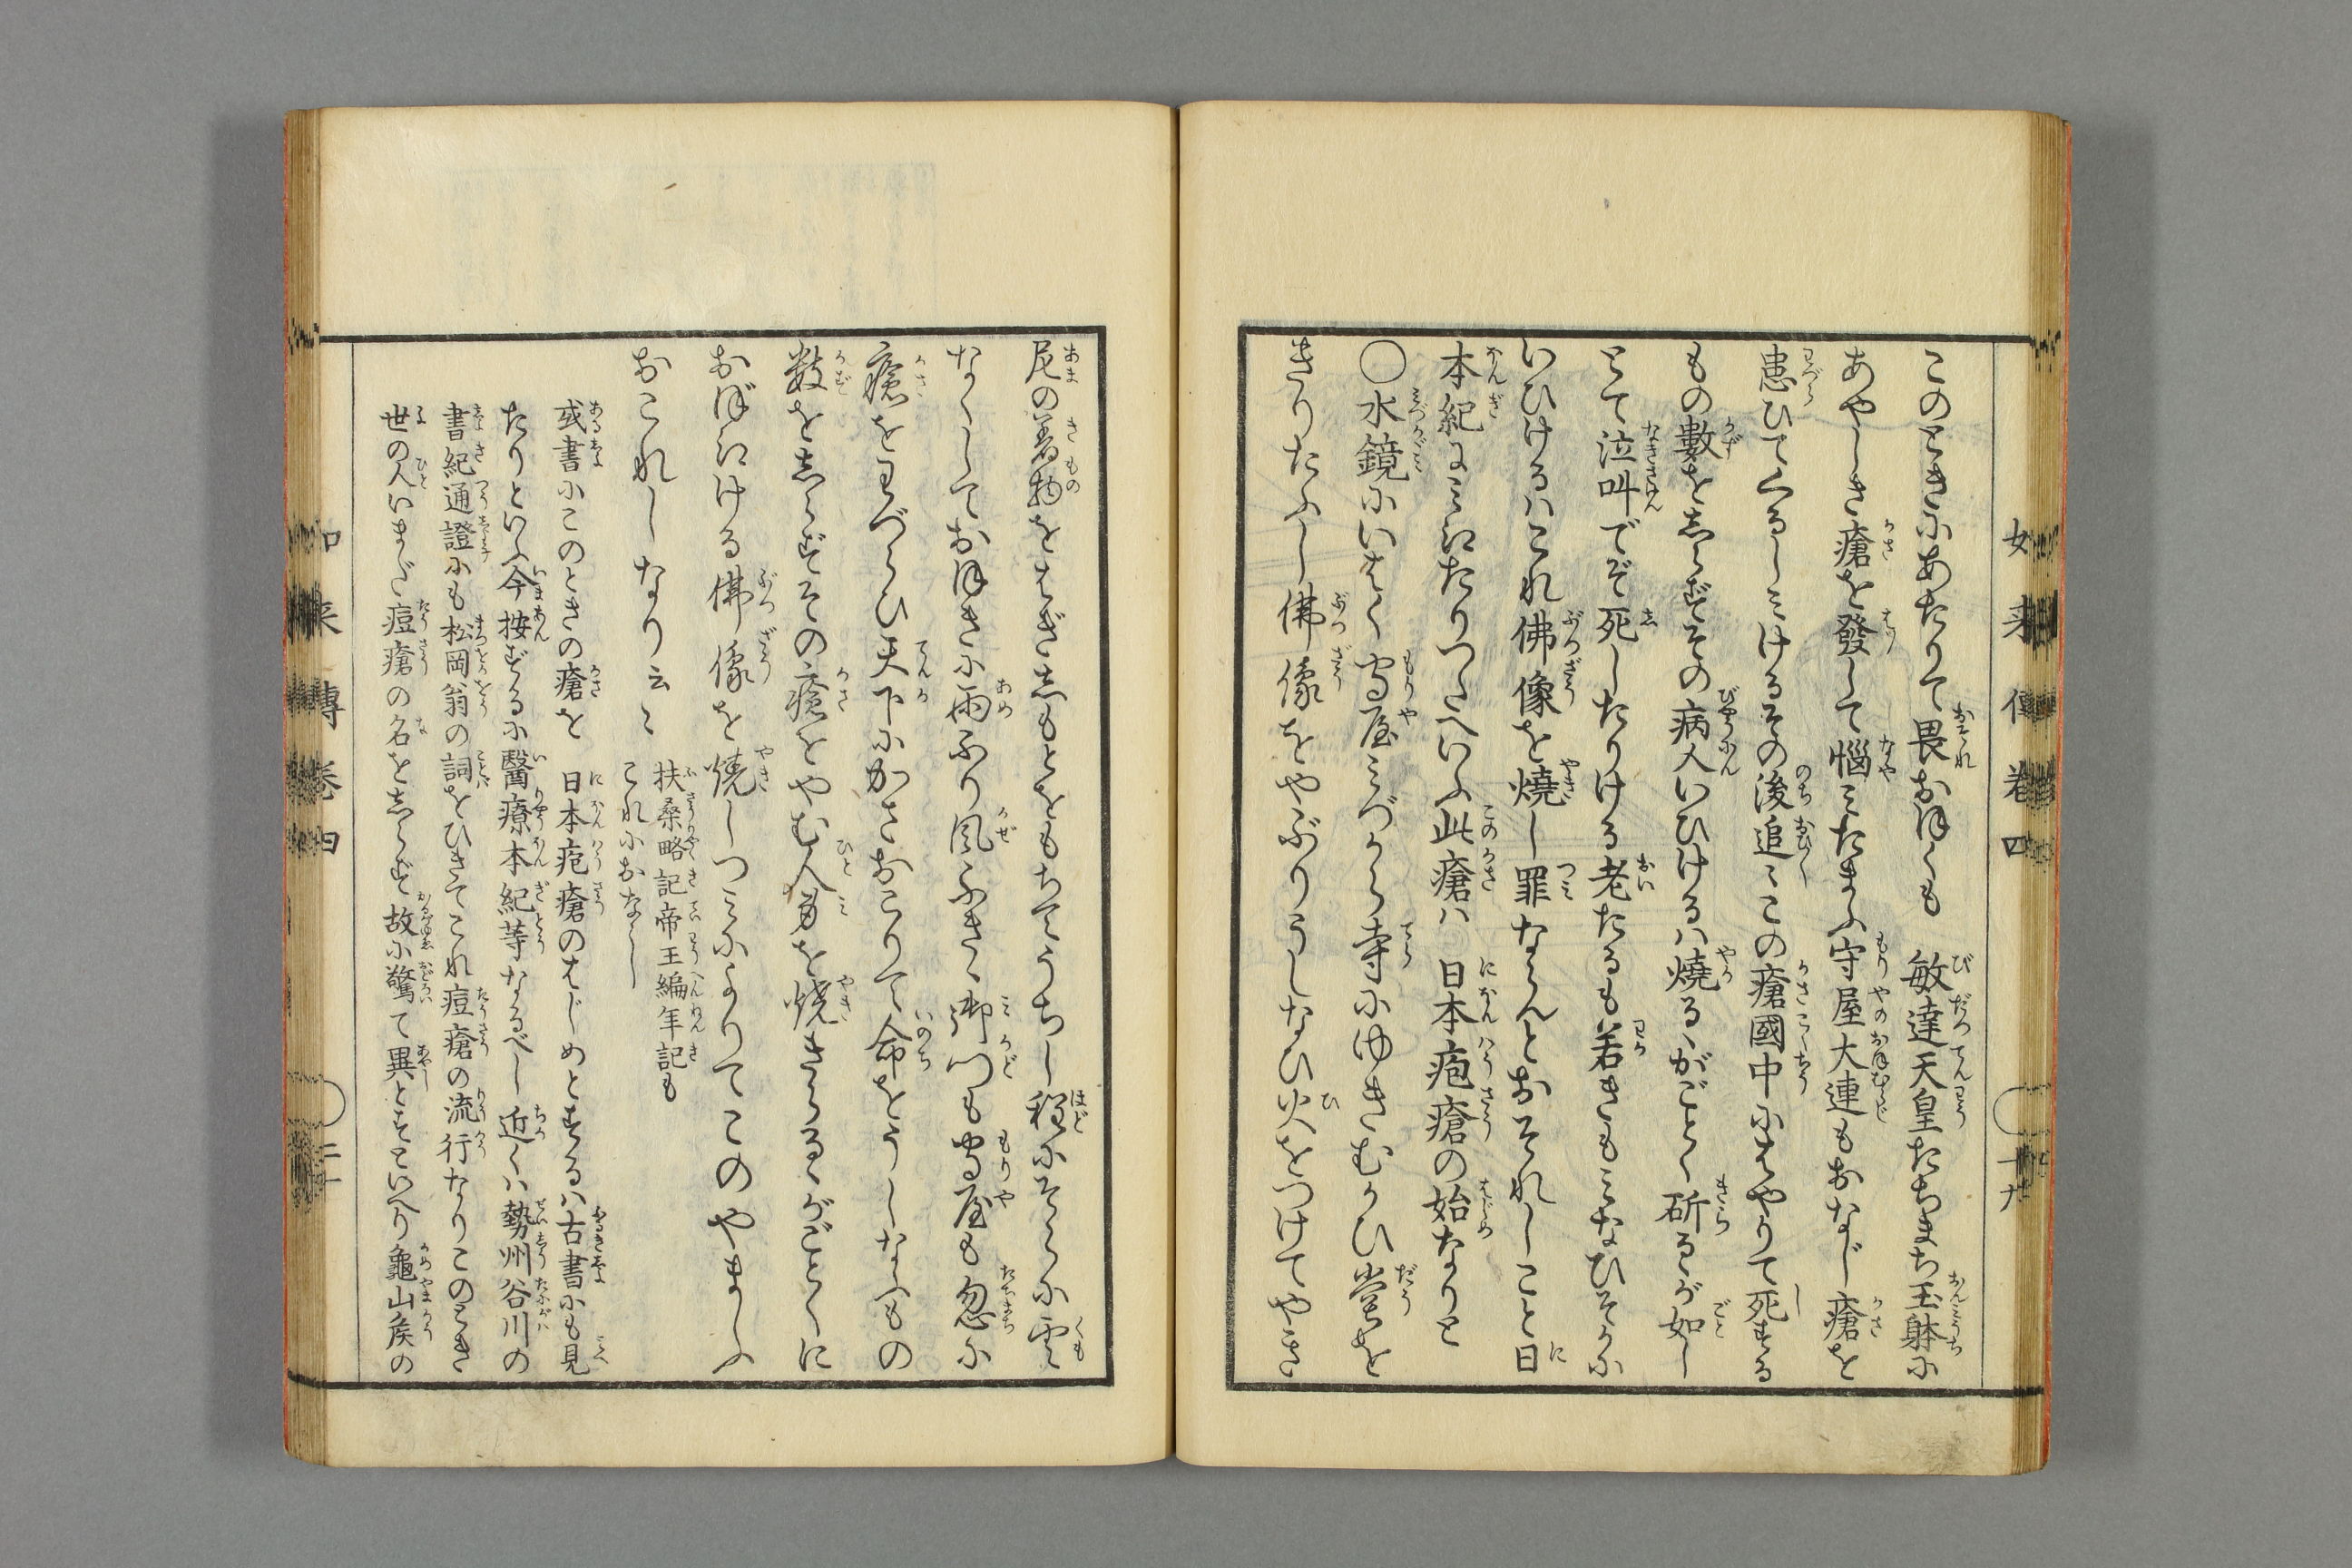 このときにあたりて畏おほくも　敏達天皇たちまち玉躰に
あやしき瘡を發して惱みたまふ守屋大連もおなじ瘡を
患ひてくるしみけるその後追〻この瘡國中にはやりて死する
もの數をしらずその病人いひけるハ燒るゝがごとく斫るゝが如し
とて泣叫でぞ死したりける老たるも若きもみなひそかに
いひけるハこれ佛像を燒し罪ならんとおそれしこと日
本紀に見えたりつたへいふ此瘡ハ　日本疱瘡の始なりと
〇水鏡にいはく守屋みづから寺にゆきむかひ堂を
きりたふし佛像をやぶりうしなひ火をつけてやき
如来傳巻四　〇十九
尼の着物をはぎしもとをもちてうちし程にそらに雲
なくしておほきに雨ふり風ふきゝ御門も守屋も忽に
瘡をわづらひ天下にかさおこりて命をうしなふもの
数をしらずその瘡をやむ人身を燒きらるゝがごとくに
おぼえける佛像を燒しつみによりてこのやまふ
おこれしなり云〻
扶桑略記帝王編年記も
これにおなし
或書にこのときの瘡を　日本疱瘡のはじめとするハ古書にも見
たりといふ今按ずるに醫療本紀等なるべし近くハ勢州谷川の
書紀通證にも松岡翁の詞をひきてこれ痘瘡の流行なりこのとき
世の人いまだ痘瘡の名をしらず故に驚て異とすといへり龜山矦の
如来傳巻四　〇二十